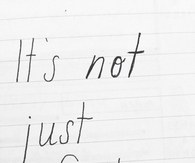 It's not
just